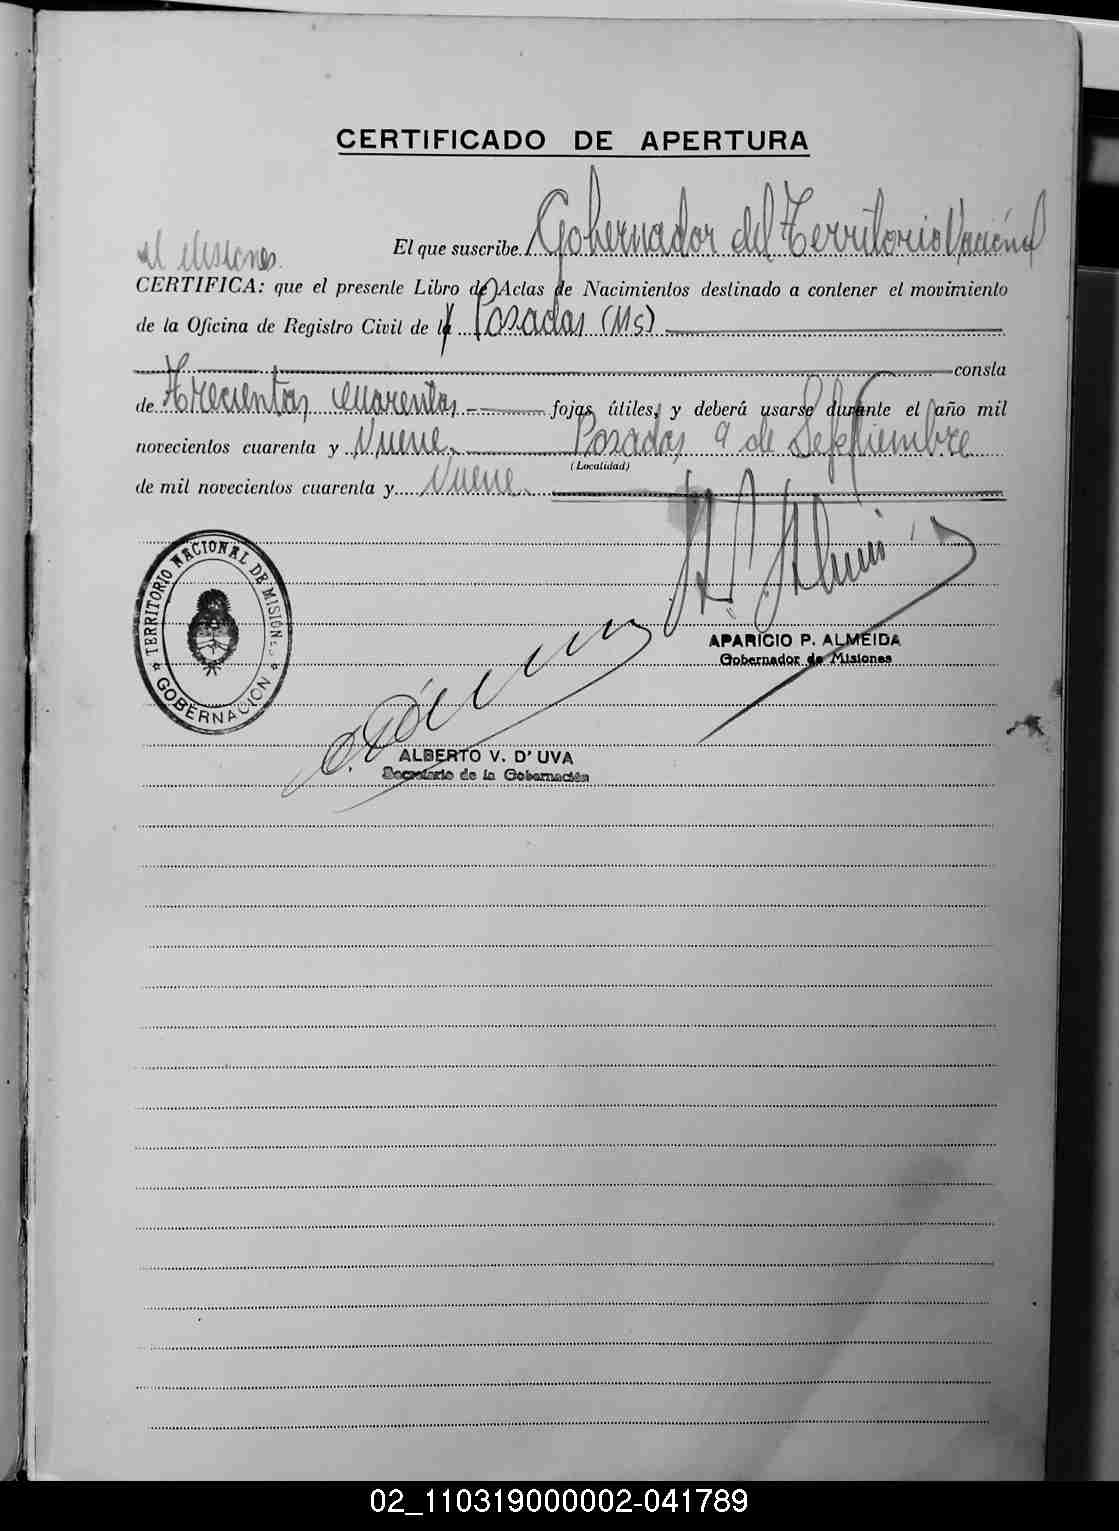 CERTIFICADO DE APERTURA
El que suscribe Gobernador del Territorio Nacional
de Misiones.
CERTIFICA: que el presente Libro de Actas de Nacimientos destinado a contener el movimiento
de la Oficina de Registro Civil de la Posadas (Ms)
consta
de Trecientas cuarentas fojas útiles, y deberá usarse durante el año mil
novecientos cuarenta y Nueve. Posadas, 9 de Septiembre
(Localidad)
de mil novecientos cuarenta y Nueve.
TERRITORIO NACIONAL DE MISIONES
GOBERNACIÓN
APARICIO P. ALMEIDA
Gobernador de Misiones
ALBERTO V. D'UVA
Secretario de la Gobernación
02_110319000002-041789